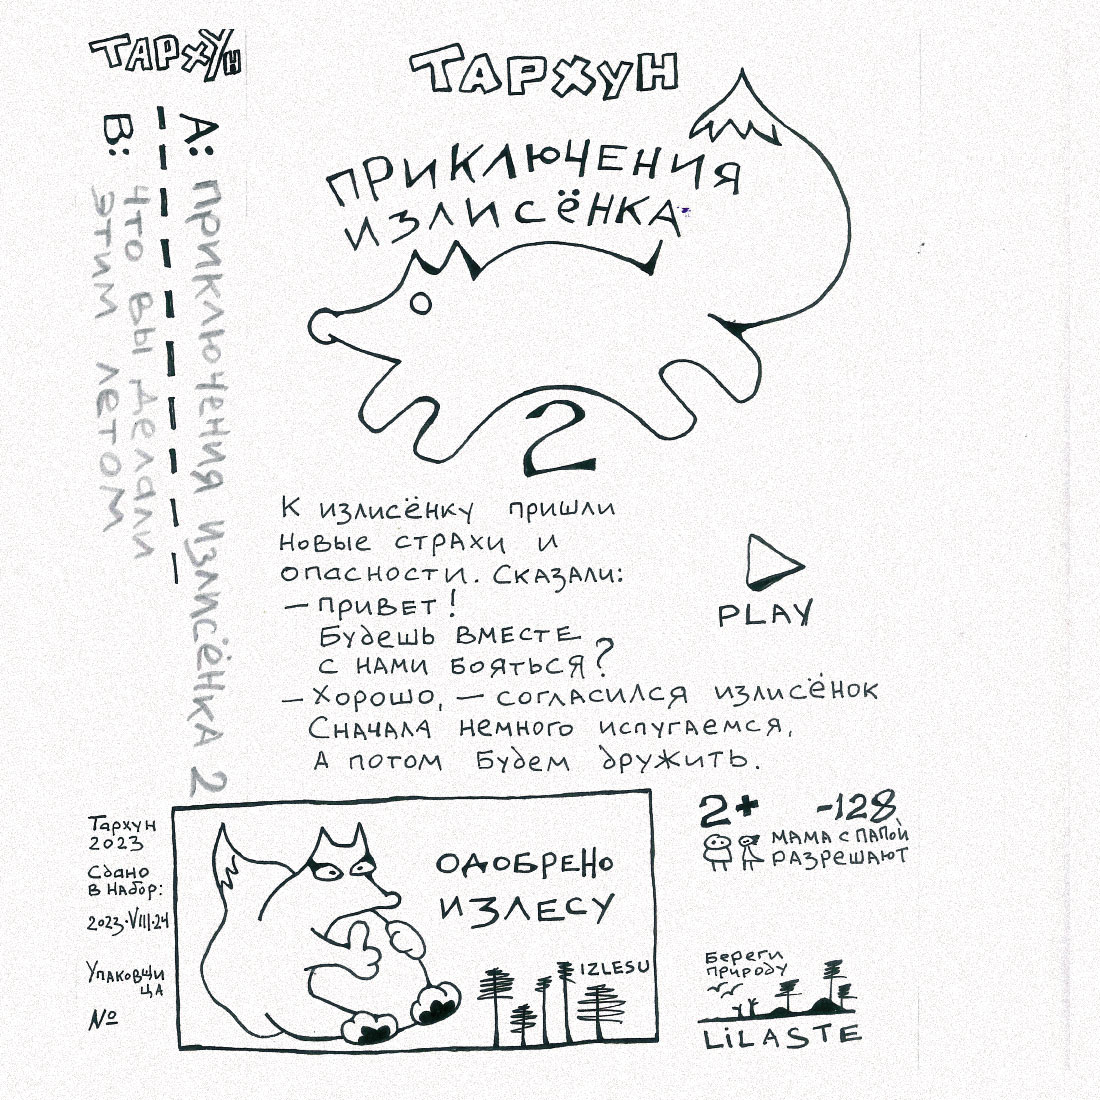 ТАРХУН
А: ПРИКЛЮЧЕНИЯ ИЗЛИСЁНКА 2
В: ЧТО ВЫ ДЕЛАЛИ
ЭТИМ ЛЕТОМ
ТАРХУН
ПРИКЛЮЧЕНИЯ
ИЗЛИСЁНКА
2
К излисёнку пришли
новые страхи и
опасности. Сказали:
— Привет!
Будешь вместе
с нами бояться?
— Хорошо, — согласился излисёнок
Сначала немного испугаемся,
А потом будем дружить.
PLAY
Тархун
2023
Сдано
в набор:
2023·VIII·24
Упаковщи
ца
№
ОДОБРЕНО
ИЗЛЕСУ
IZLESU
2+ -128
МАМА С ПАПОЙ
РАЗРЕШАЮТ
Береги
природу
LiLASTE